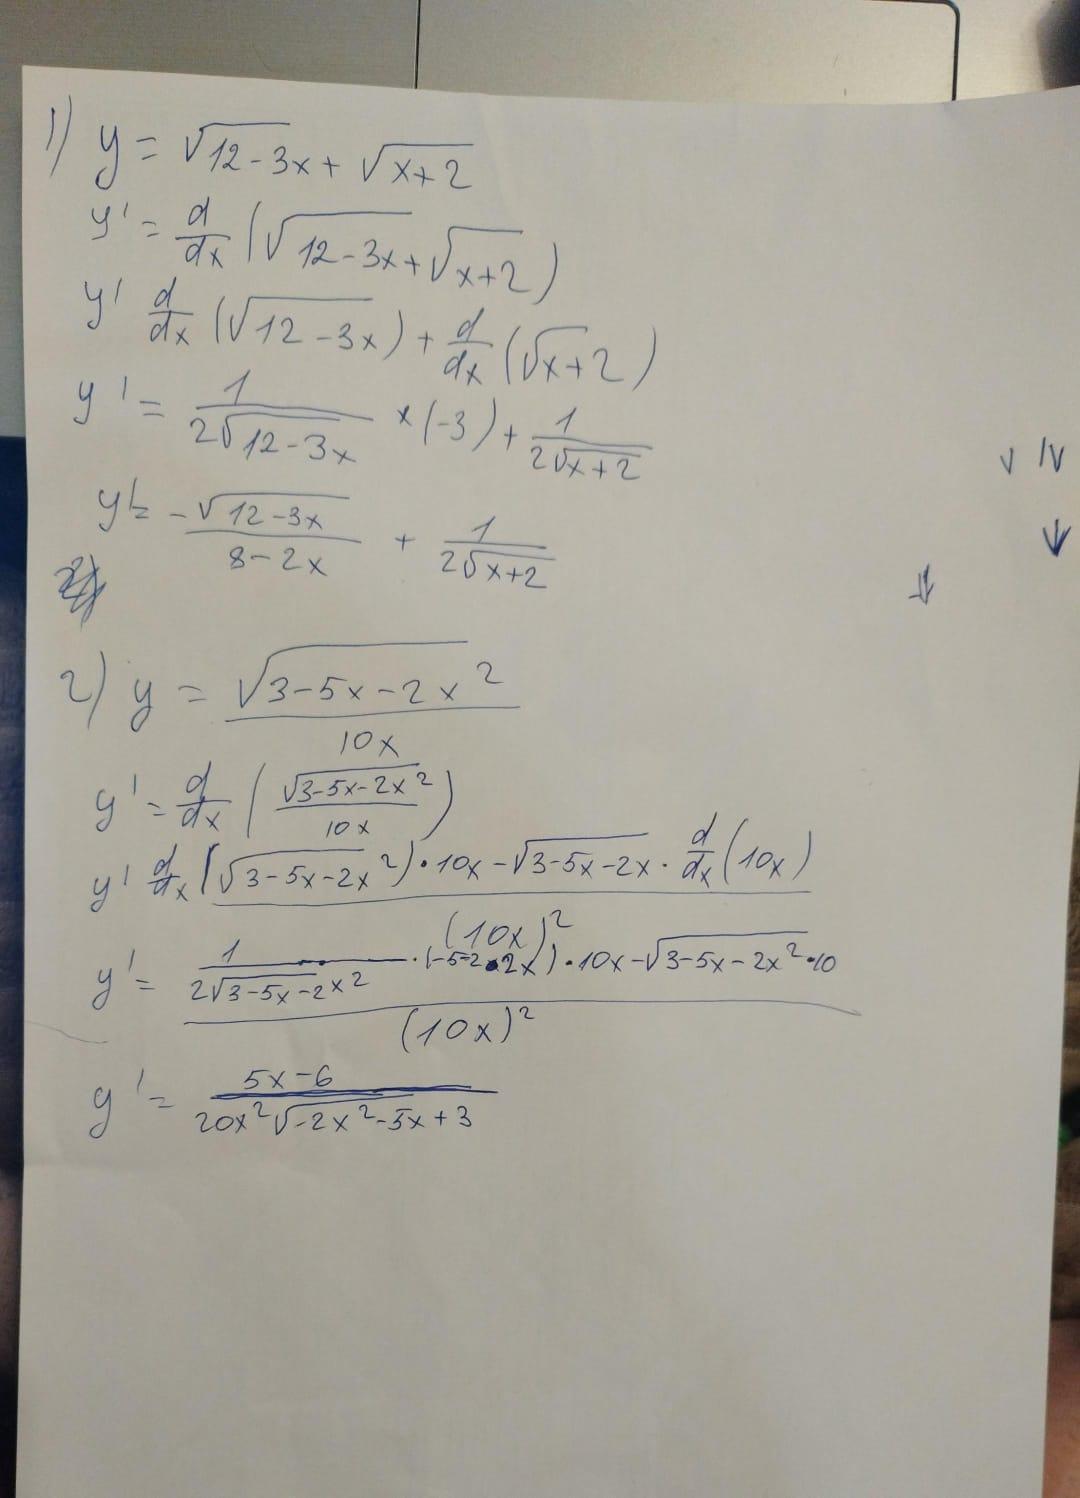 1) y = √12-3x + √x+2
y' = d/dx (√12-3x + √x+2)
y' d/dx (√12-3x) + d/dx (√x+2)
y' = 1/2√12-3x × (-3) + 1/2√x+2
y' = -√12-3x/8-2x + 1/2√x+2
2) y = √3-5x-2x²/10x
y' = d/dx (√3-5x-2x²/10x)
y' d/dx (√3-5x-2x²)·10x-√3-5x-2x · d/dx (10x)
(10x)²
y' = 1/2√3-5x-2x² · (-5-2·2x)·10x-√3-5x-2x²·10
(10x)²
y' = 5x-6/20x²√-2x²-5x+3